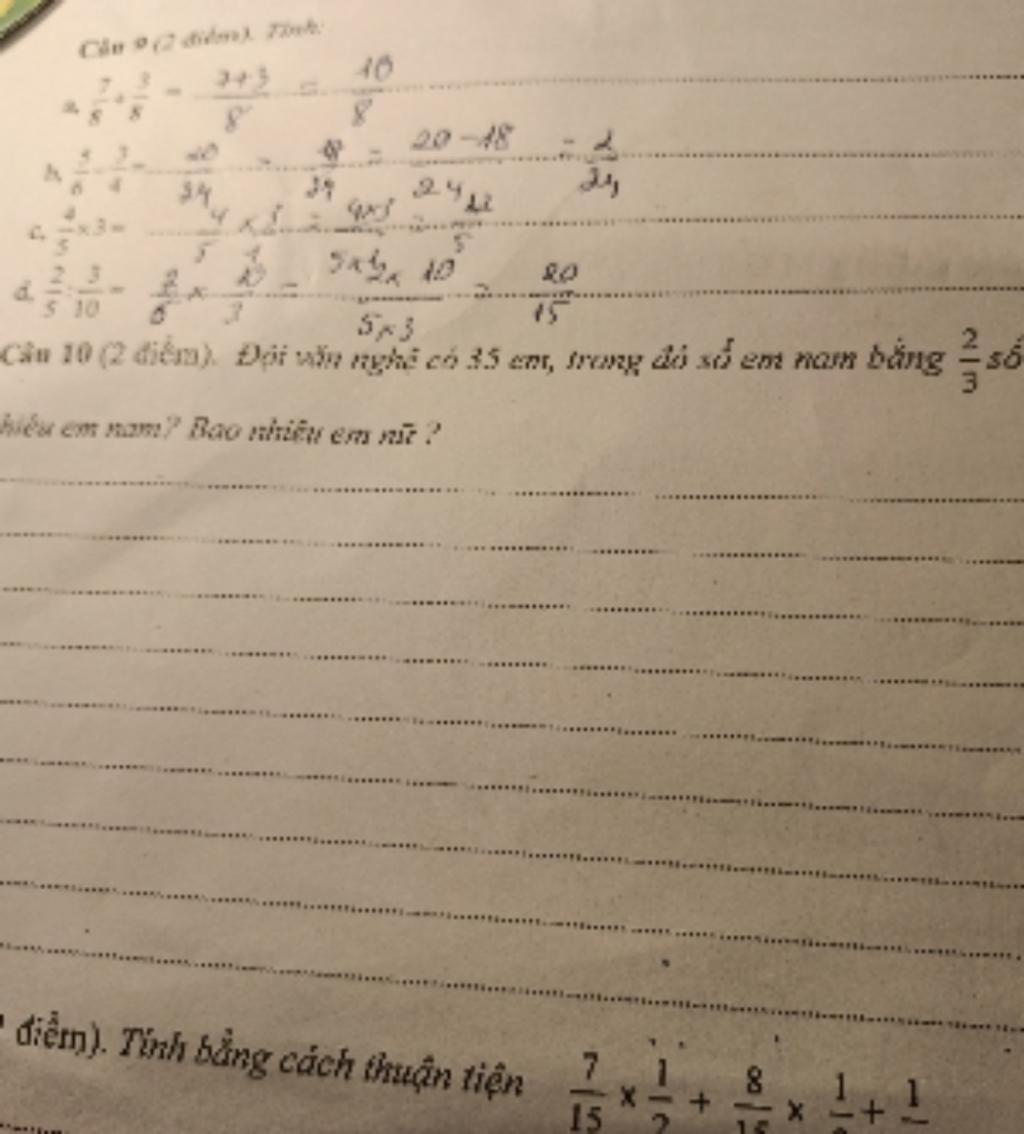 Câu 9 (2 điểm). Tính:
a. 7/8 + 3/8 = 7+3/8 = 10/8
b, 5/6 - 3/4 = 20/24 - 18/24 = 20-18/24 = 2/24
c, 4/5 × 3 = 4/5 × 3/1 = 4×3/5×1 = 12/5
d. 2/5 : 3/10 = 2/5 × 10/3 = 2×10/5×3 = 20/15
Câu 10 (2 điểm). Đội văn nghệ có 35 em, trong đó số em nam bằng 2/3 số
nhiêu em nam? Bao nhiêu em nữ ?
điểm). Tính bằng cách thuận tiện 7/15 × 1/2 + 8/15 × 1/ + 1/